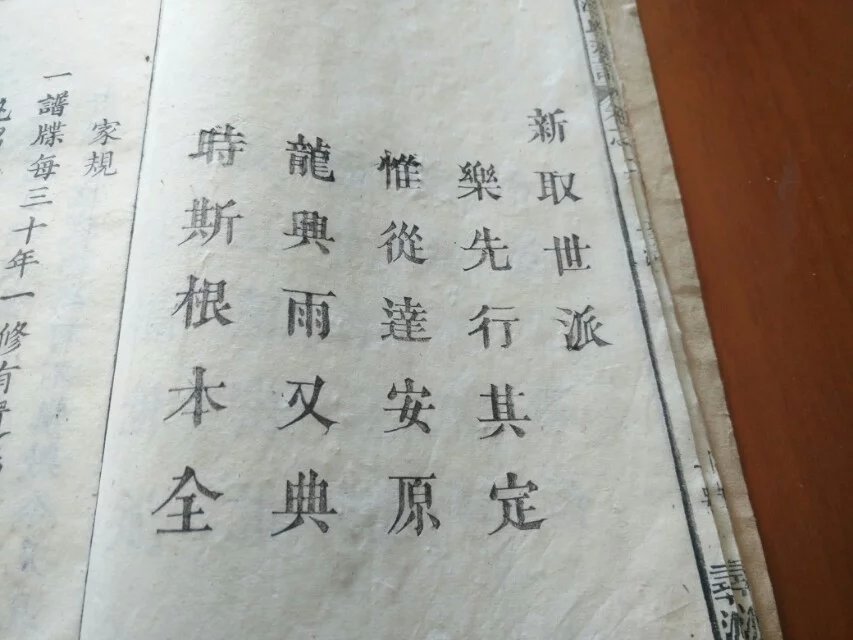 新取世派
樂先行其定
惟從達安原
龍興雨又典
時斯根本全
家規
一譜牒每三十年一修